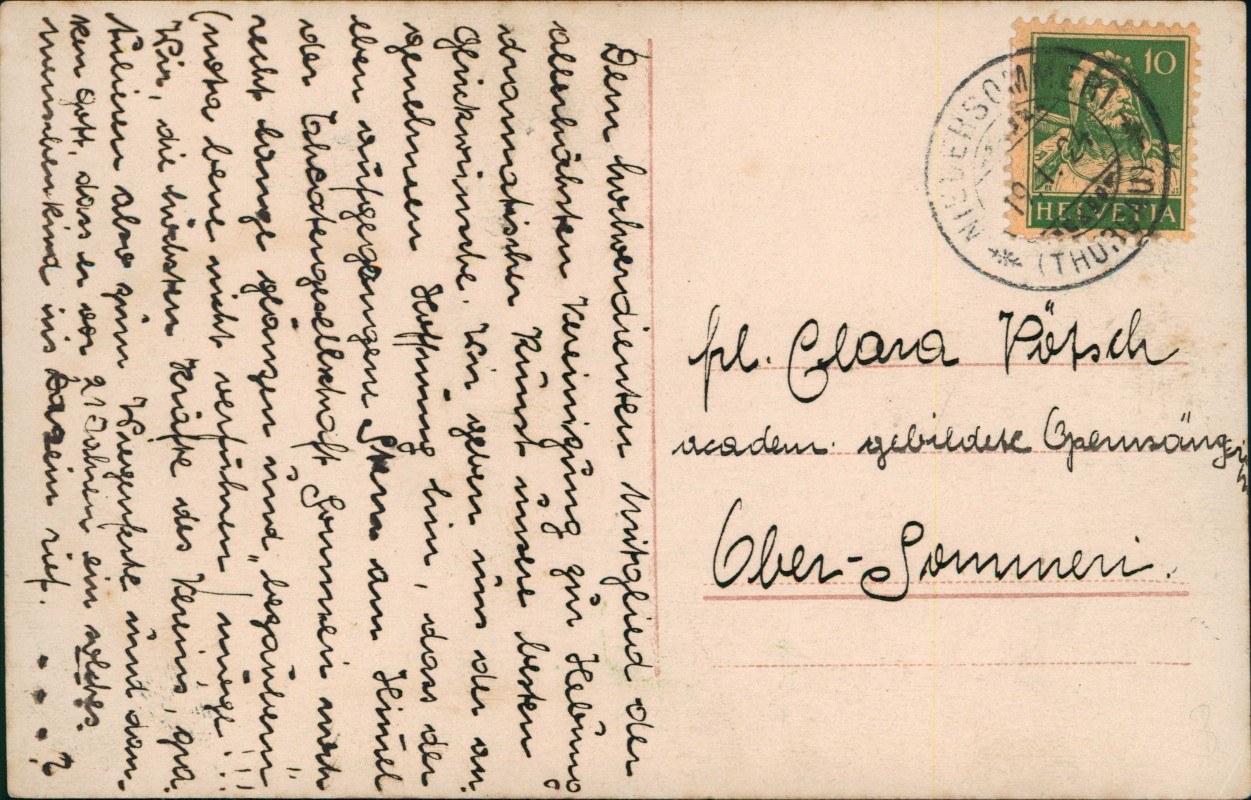 Dem hochverdienten Mitglied der
allernährsten Vereinigung zur Hebung
dramatischer Kunst unsere besten
Glückwünsche. Wir geben uns der an
genehmen Hoffnung hin, dass der
eben aufgegangene Stern am Himmel
der Theatergesellschaft Sommeri noch
recht lange glänzen und „bezaubern“
(nota bene nicht verführen) möge!!!!
Wir, die höchsten Kräfte des Vereins, gra
tulieren also zum Wiegenfeste und dan-
ken Gott, dass er vor 21 Jahren ein solches
menschenkind ins Dasein rief. . . . ?
10
HELVETIA
NIEDERSOMMERI
(THURGAU)
Frl. Clara Pötsch
academ. gebildete Opernsängerin
Ober-Sommeri.